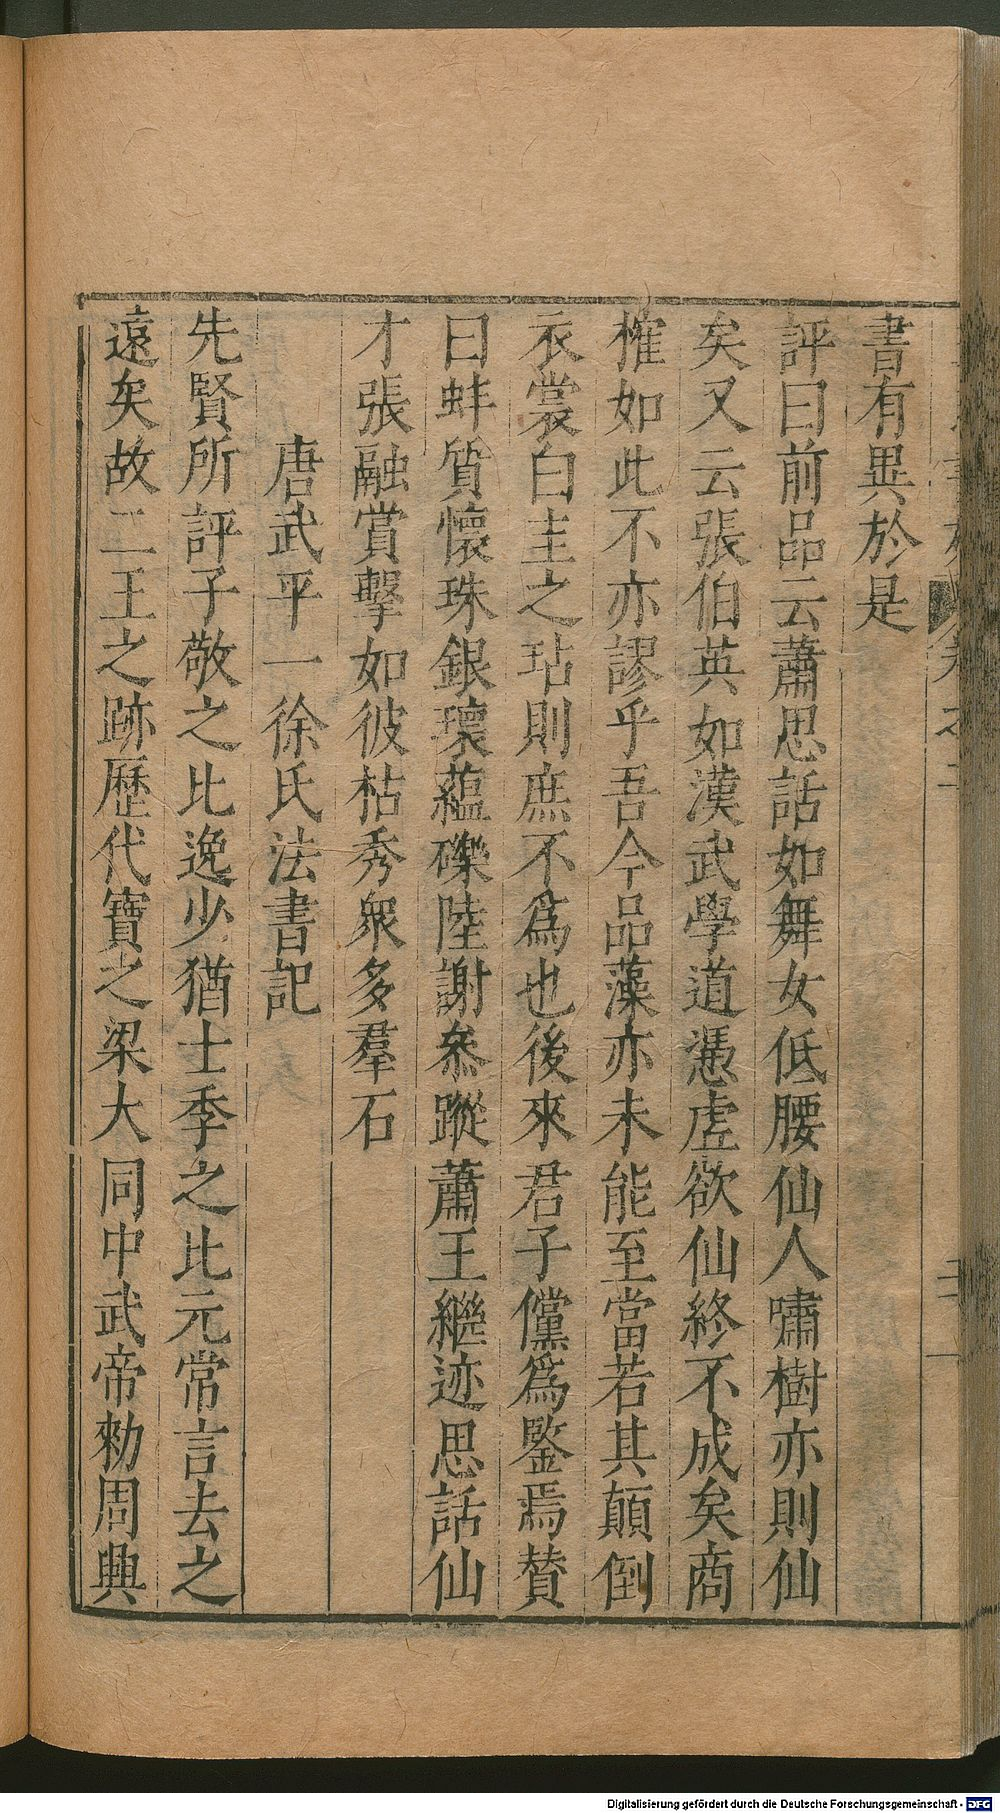 書有異於是
評曰前品云蕭思話如舞女低腰仙人嘯樹亦則仙
矣又云張伯英如漢武學道憑虛欲仙終不成矣商
搉如此不亦謬乎吾今品藻亦未能至當若其顛倒
衣裳白圭之玷則庶不爲也後來君子儻爲鑒焉贊
曰蚌質懷珠銀瓌蘊礫陸謝叅蹤蕭王繼迹思話仙
才張融賞擊如彼枯秀衆多羣石
唐武平一徐氏法書記
先賢所評子敬之比逸少猶士季之比元常言去之
遠矣故二王之跡歷代寶之梁大同中武帝勑周興
Digitalisierung gefördert durch die Deutsche Forschungsgemeinschaft - DFG